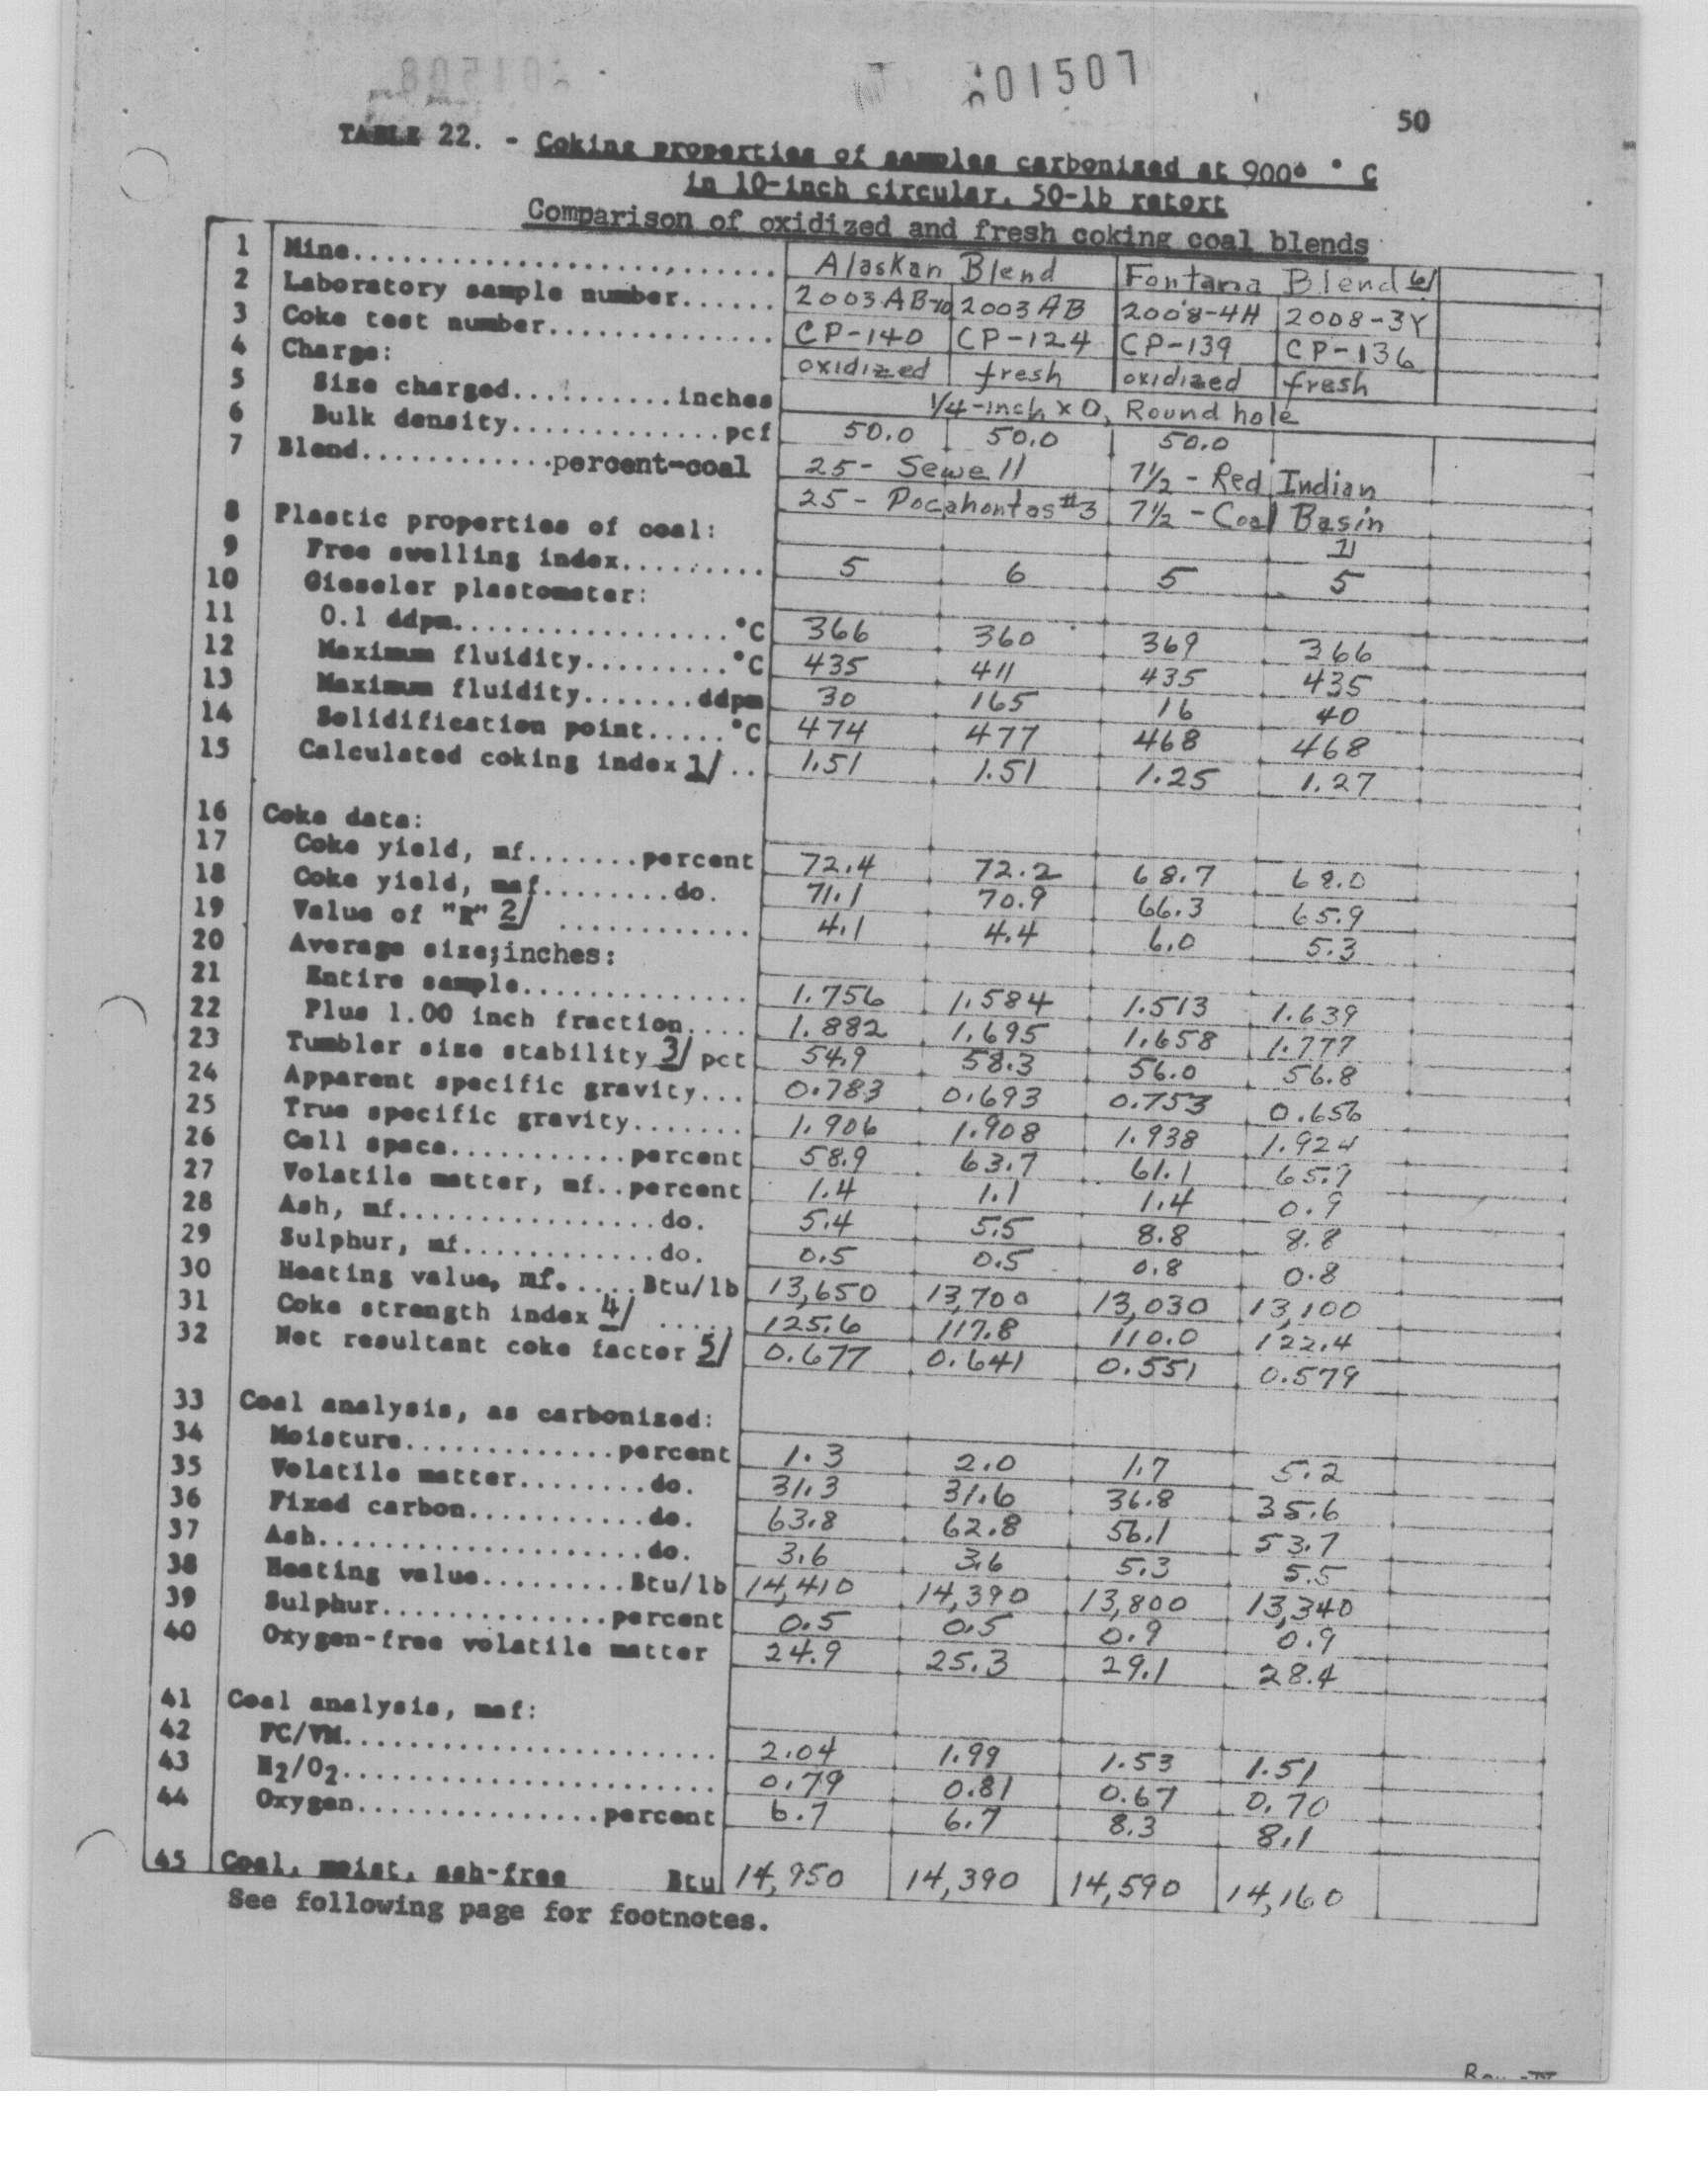 001507
50
TABLE 22. - Coking properties of samples carbonized at 900° ° C
in 10-inch circular, 50-lb retort
Comparison of oxidized and fresh coking coal blends
1 Mine........................... Alaskan Blend Fontana Blend 6/
2 Laboratory sample number...... 2003AB-10 2003AB 2008-4H 2008-3Y
3 Coke test number.............. CP-140 CP-124 CP-139 CP-136
4 Charge: oxidized fresh oxidized fresh
5 Size charged..........inches 1/4-inch x 0, Round hole
6 Bulk density.............pcf 50.0 50.0 50.0
7 Blend............percent-coal 25- Sewell 7½ - Red Indian
25- Pocahontas #3 7½ - Coal Basin
8 Plastic properties of coal:
9 Free swelling index......... 5 6 5 5
10 Gieseler plastometer:
11 0.1 ddpm.................°C 366 360 369 366
12 Maximum fluidity.........°C 435 411 435 435
13 Maximum fluidity.......ddpm 30 165 16 40
14 Solidification point.....°C 474 477 468 468
15 Calculated coking index 1/ .. 1.51 1.51 1.25 1.27
16 Coke data:
17 Coke yield, mf.......percent 72.4 72.2 68.7 68.0
18 Coke yield, maf.........do. 71.1 70.9 66.3 65.9
19 Value of "R" 2/ ............ 4.1 4.4 6.0 5.3
20 Average size;inches:
21 Entire sample.............. 1.756 1.584 1.513 1.639
22 Plus 1.00 inch fraction.... 1.882 1.695 1.658 1.777
23 Tumbler size stability 3/ pct 54.9 58.3 56.0 56.8
24 Apparent specific gravity... 0.783 0.693 0.753 0.656
25 True specific gravity....... 1.906 1.908 1.938 1.924
26 Cell space...........percent 58.9 63.7 61.1 65.9
27 Volatile matter, mf..percent 1.4 1.1 1.4 0.9
28 Ash, mf.................do. 5.4 5.5 8.8 8.8
29 Sulphur, mf.............do. 0.5 0.5 0.8 0.8
30 Heating value, mf.....Btu/lb 13,650 13,700 13,030 13,100
31 Coke strength index 4/ ..... 125.6 117.8 110.0 122.4
32 Net resultant coke factor 5/ 0.677 0.641 0.551 0.579
33 Coal analysis, as carbonized:
34 Moisture..............percent 1.3 2.0 1.7 5.2
35 Volatile matter.........do. 31.3 31.6 36.8 35.6
36 Fixed carbon............do. 63.8 62.8 56.1 53.7
37 Ash.....................do. 3.6 3.6 5.3 5.5
38 Heating value..........Btu/lb 14,410 14,390 13,800 13,340
39 Sulphur...............percent 0.5 0.5 0.9 0.9
40 Oxygen-free volatile matter 24.9 25.3 29.1 28.4
41 Coal analysis, maf:
42 FC/VM........................ 2.04 1.99 1.53 1.51
43 H2/O2........................ 0.79 0.81 0.67 0.70
44 Oxygen................percent 6.7 6.7 8.3 8.1
45 Coal, moist, ash-free Btu 14,950 14,390 14,590 14,160
See following page for footnotes.